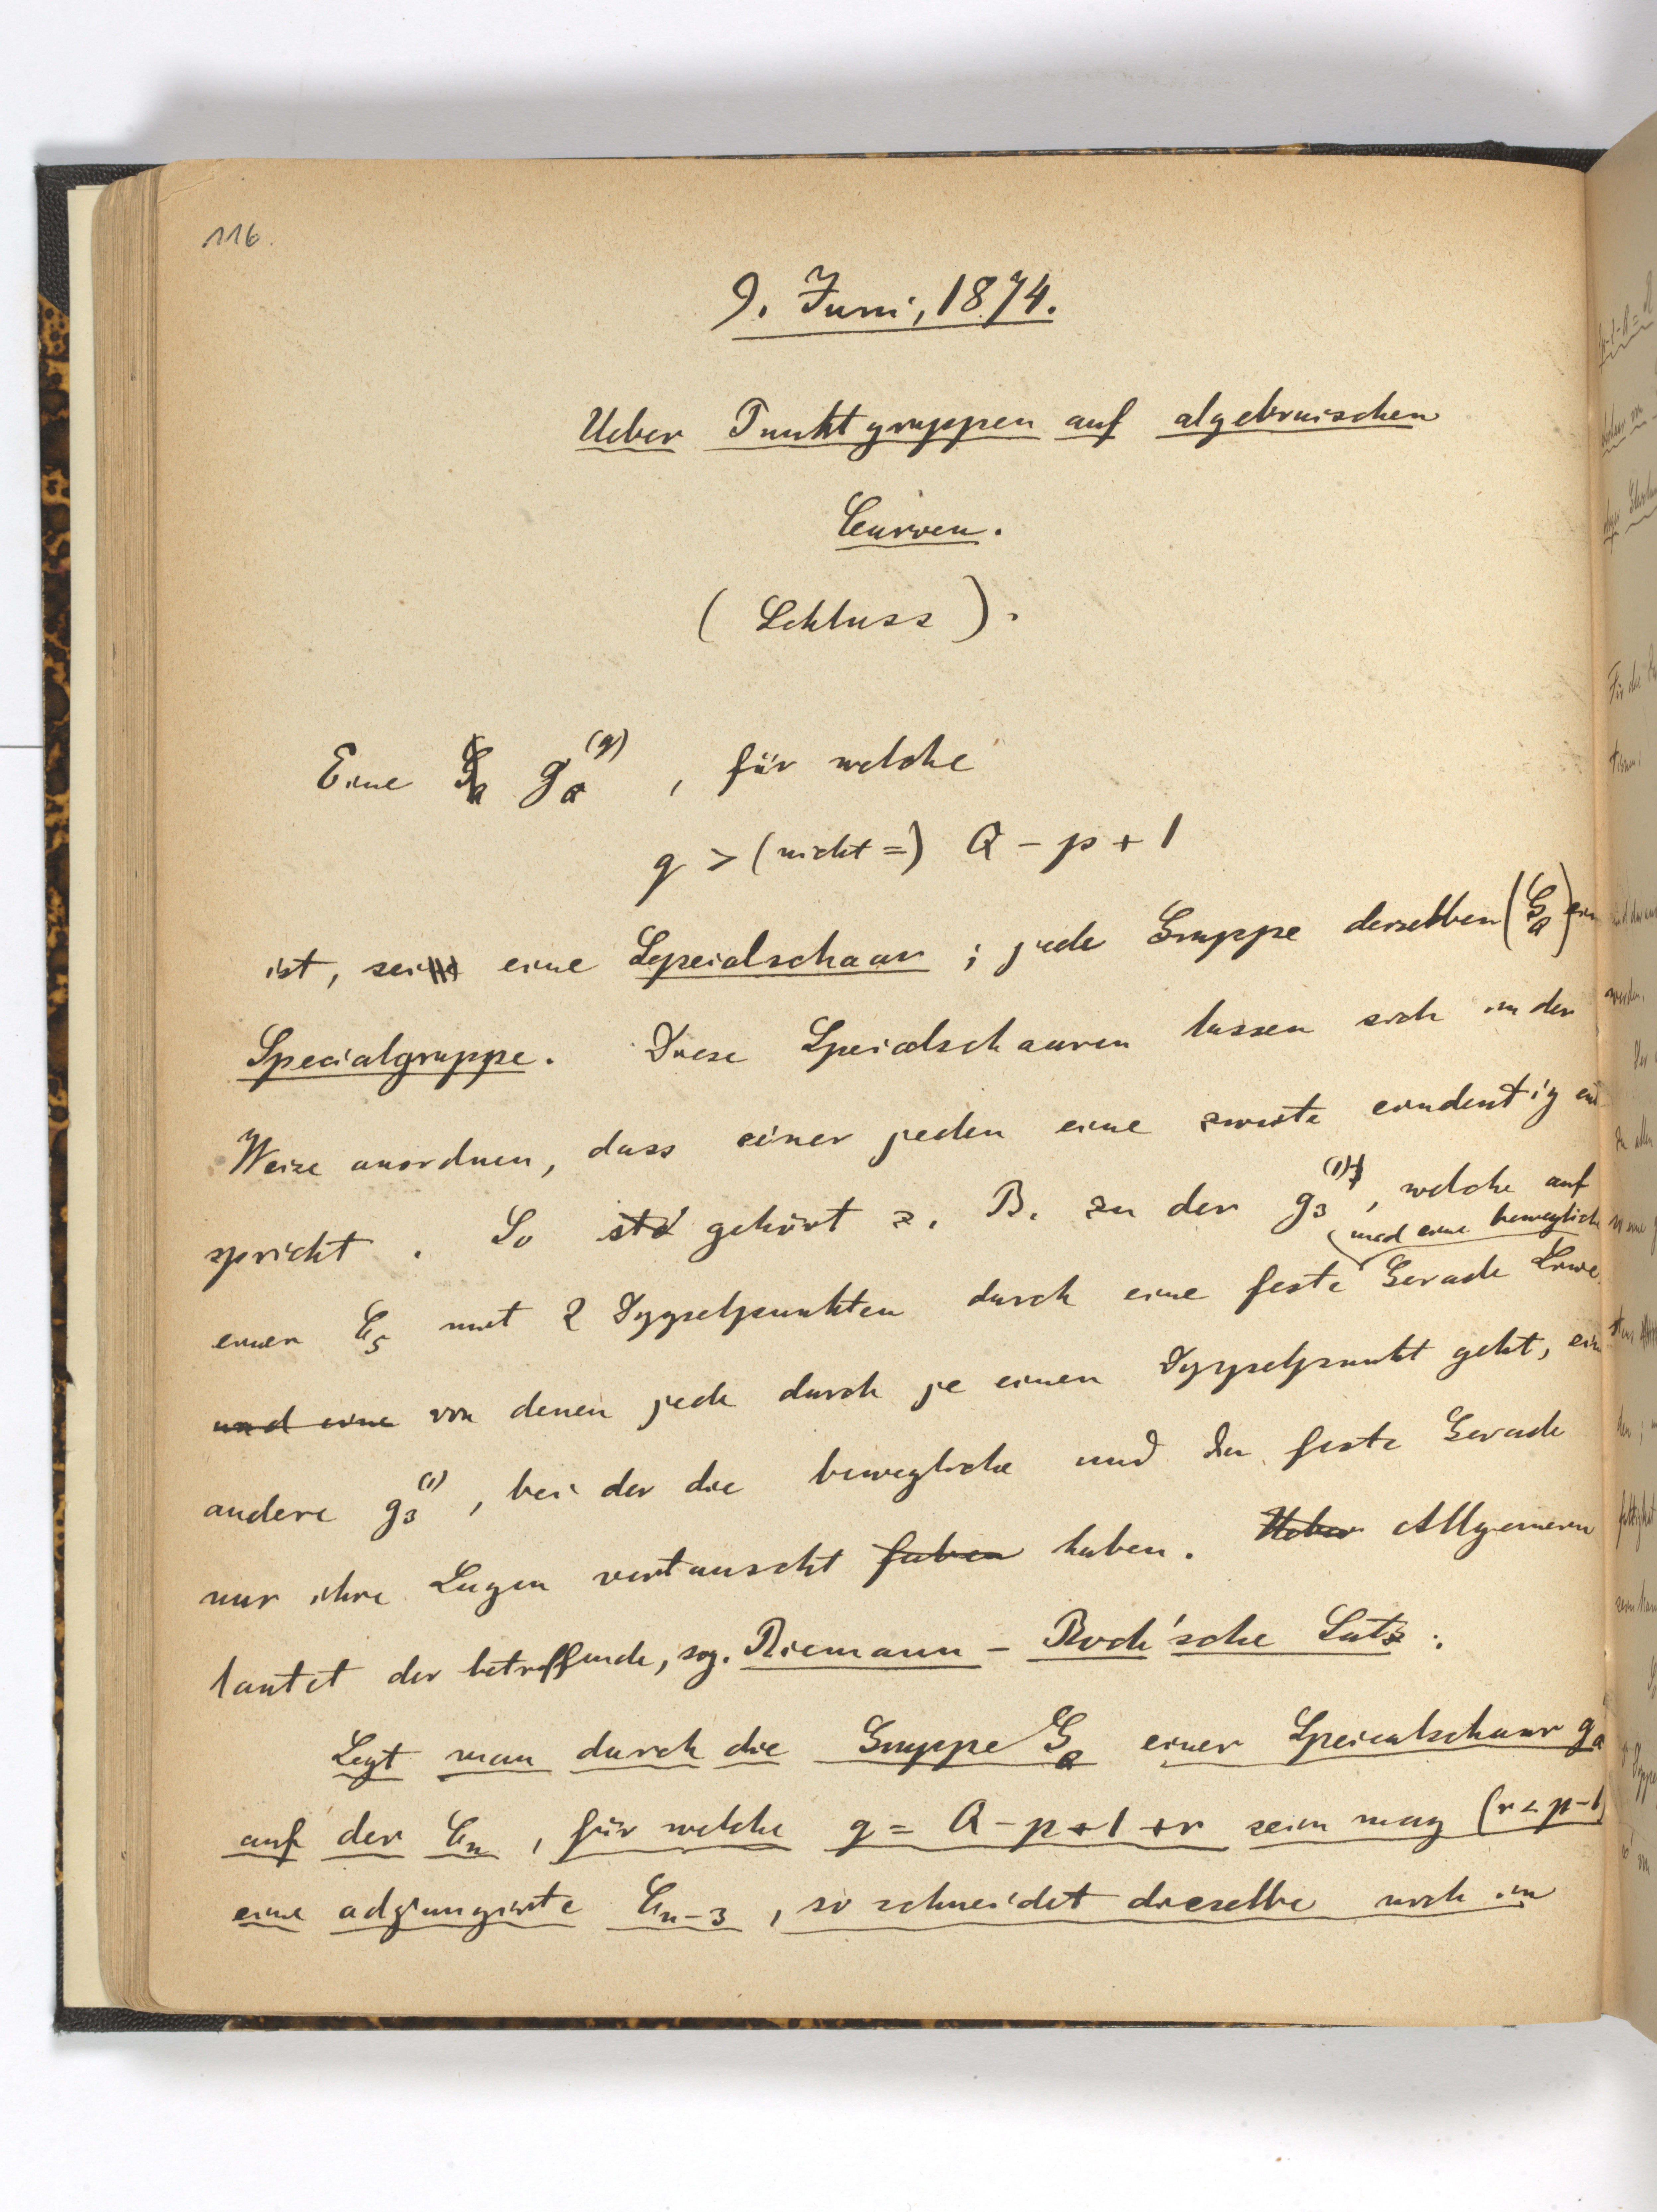 116.
9. Juni, 1874.
Ueber Punktgruppen auf algebraischen
Curven.
(Schluss).
Eine g_Q^(q), für welche
q > (nicht =) Q - p + 1
ist, sei eine Specialschaar; jede Gruppe derselben (G_Q) ein
Specialgruppe. Diese Specialschaaren lassen sich in der
Weise anordnen, dass einer jeden eine zweite eindeutig ent
spricht. So gehört z. B. zu der g_3^(1), welche auf
und eine bewegliche
einer C_5 mit 2 Doppelpunkten durch eine feste Gerade
und eine von denen jede durch je einen Doppelpunkt geht, eine
andere g_3^(1), bei der die bewegliche und die feste Gerade
nur ihre Lagen vertauscht haben. Ueber Allgemein
lautet der betreffende, sog. Riemann-Roch'sche Satz:
Legt man durch die Gruppe G_Q einer Specialschaar g_Q
auf der C_n, für welche q = Q - p + 1 + r sein mag (r < p-1)
eine adjungirte C_n-3, so schneidet dieselbe noch in